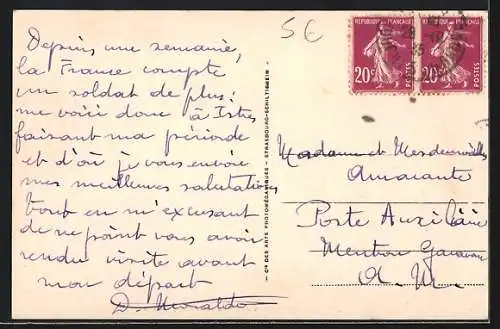 Depuis une semaine,
la France compte
un soldat de plus!
me voici donc à Istres
faisant ma période
et d'où je vous envoie
mes meilleures salutations
tout en m'excusant
de ne point vous avoir
rendu visite avant
mon départ
D.
5€
REPUBLIQUE FRANÇAISE
20c
POSTES
REPUBLIQUE FRANÇAISE
20c
POSTES
Cie DES ARTS PHOTOMÉCANIQUES - STRASBOURG-SCHILTIGHEIM
Madame et Mesdemoiselles
Amarante
Poste Auxiliaire
Menton Garavan
A. M.